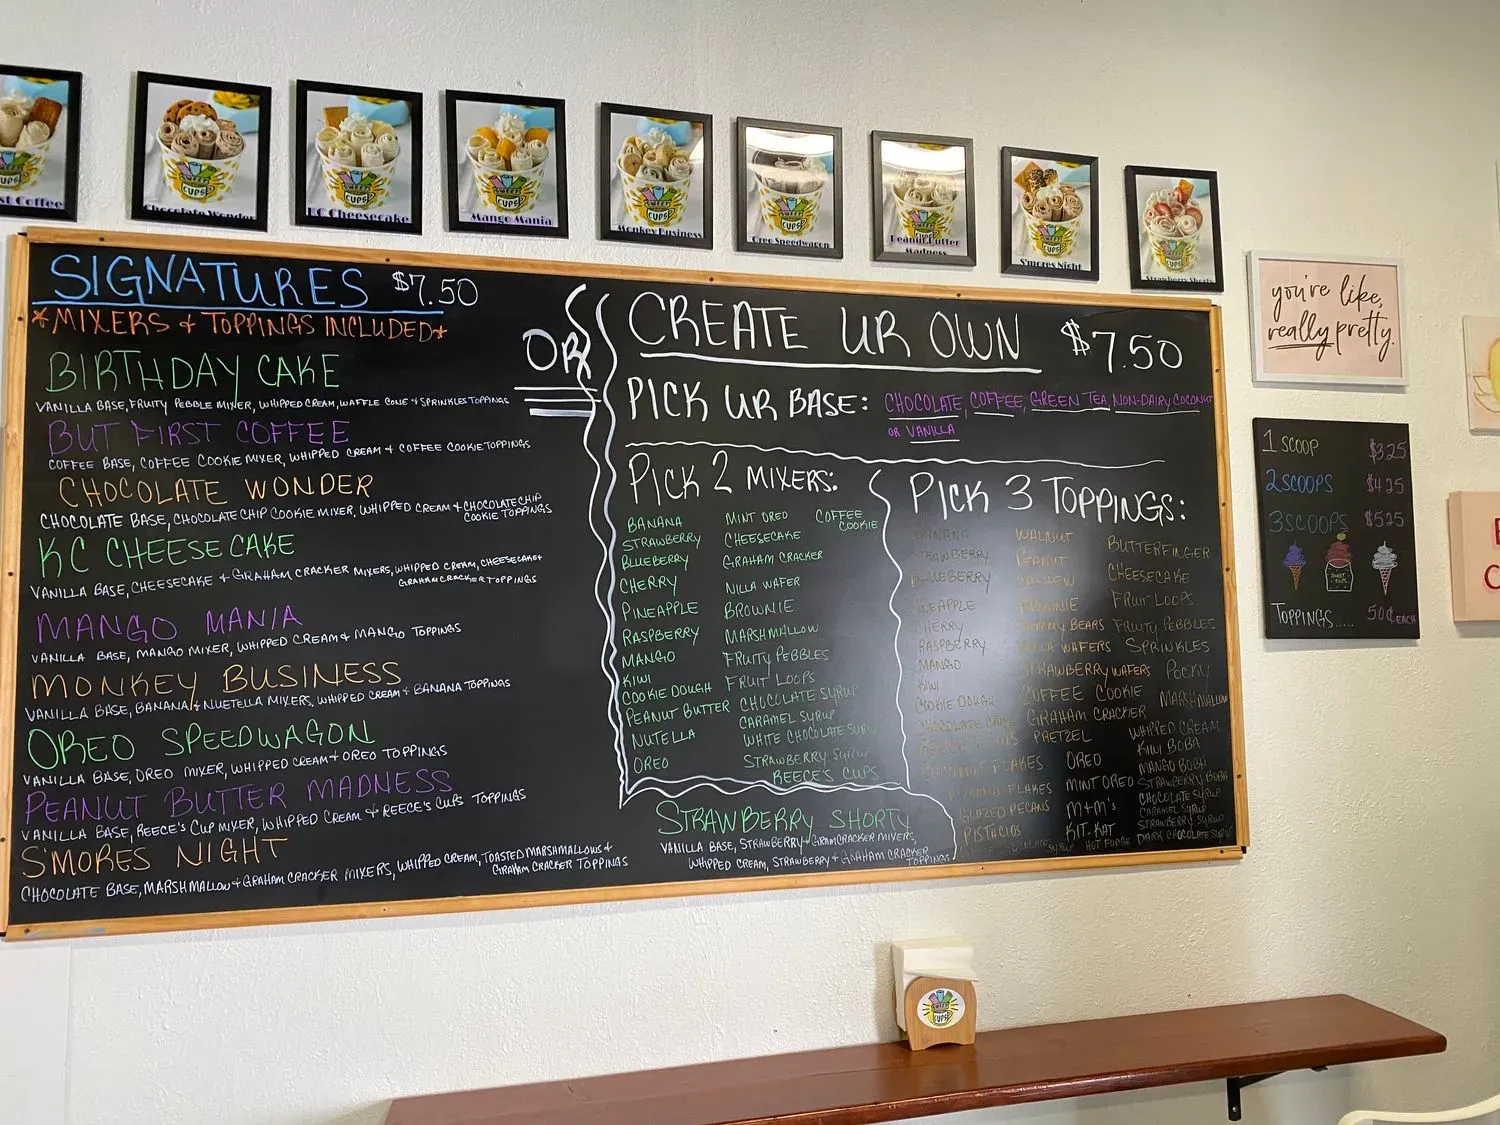 st Coffee
Chocolate Wonder
KC Cheesecake
Mango Mania
Monkey Business
Oreo Speedwagon
Peanut Butter
Madness
S'mores Night
Strawberry Shorty
SWEET CUPS
SIGNATURES $7.50
*MIXERS + TOPPINGS INCLUDED*
BIRTHDAY CAKE
VANILLA BASE, FRUITY PEBBLE MIXER, WHIPPED CREAM, WAFFLE CONE + SPRINKLES TOPPINGS
BUT FIRST COFFEE
COFFEE BASE, COFFEE COOKIE MIXER, WHIPPED CREAM + COFFEE COOKIE TOPPINGS
CHOCOLATE WONDER
CHOCOLATE BASE, CHOCOLATE CHIP COOKIE MIXER, WHIPPED CREAM + CHOCOLATE CHIP
COOKIE TOPPINGS
KC CHEESECAKE
VANILLA BASE, CHEESECAKE + GRAHAM CRACKER MIXERS, WHIPPED CREAM, CHEESECAKE +
GRAHAM CRACKER TOPPINGS
MANGO MANIA
VANILLA BASE, MANGO MIXER, WHIPPED CREAM + MANGO TOPPINGS
MONKEY BUSINESS
VANILLA BASE, BANANA + NUETELLA MIXERS, WHIPPED CREAM + BANANA TOPPINGS
OREO SPEEDWAGON
VANILLA BASE, OREO MIXER, WHIPPED CREAM + OREO TOPPINGS
PEANUT BUTTER MADNESS
VANILLA BASE, REECE'S CUP MIXER, WHIPPED CREAM + REECE'S CUPS TOPPINGS
S'MORES NIGHT
CHOCOLATE BASE, MARSHMALLOW + GRAHAM CRACKER MIXERS, WHIPPED CREAM, TOASTED MARSHMALLOWS +
GRAHAM CRACKER TOPPINGS
OR
CREATE UR OWN $7.50
PICK UR BASE: CHOCOLATE, COFFEE, GREEN TEA, NON-DAIRY COCONUT
OR VANILLA
PICK 2 MIXERS:
BANANA
STRAWBERRY
BLUEBERRY
CHERRY
PINEAPPLE
RASPBERRY
MANGO
KIWI
COOKIE DOUGH
PEANUT BUTTER
NUTELLA
OREO
MINT OREO
CHEESECAKE
GRAHAM CRACKER
NILLA WAFER
BROWNIE
MARSHMALLOW
FRUITY PEBBLES
FRUIT LOOPS
CHOCOLATE SYRUP
CARAMEL SYRUP
WHITE CHOCOLATE SYRUP
STRAWBERRY SYRUP
REECE'S CUPS
COFFEE
COOKIE
STRAWBERRY SHORTY
VANILLA BASE, STRAWBERRY + GRAM CRACKER MIXERS,
WHIPPED CREAM, STRAWBERRY + GRAHAM CRACKER
TOPPINGS
PICK 3 TOPPINGS:
BANANA
STRAWBERRY
BLUEBERRY
PINEAPPLE
CHERRY
RASPBERRY
MANGO
KIWI
COOKIE DOUGH
CHOCOLATE CHIPS
REECE'S CUPS
COCONUT FLAKES
FLAKES
GLAZED PECANS
PISTACIOS
WALNUT
PEANUT
CASHEW
BROWNIE
GUMMY BEARS
NILLA WAFERS
STRAWBERRY WAFERS
COFFEE COOKIE
GRAHAM CRACKER
PRETZEL
OREO
MINT OREO
M+M'S
KIT KAT
HOT FUDGE
BUTTERFINGER
CHEESECAKE
FRUIT LOOPS
FRUITY PEBBLES
SPRINKLES
POCKY
MARSHMALLOW
WHIPPED CREAM
KIWI BOBA
MANGO BOBA
STRAWBERRY BOBA
CHOCOLATE SYRUP
CARAMEL SYRUP
STRAWBERRY SYRUP
DARK CHOCOLATE SYRUP
you're like,
really pretty.
1 SCOOP $3.25
2 SCOOPS $4.25
3 SCOOPS $5.25
TOPPINGS..... 50¢ EACH
SWEET CUPS